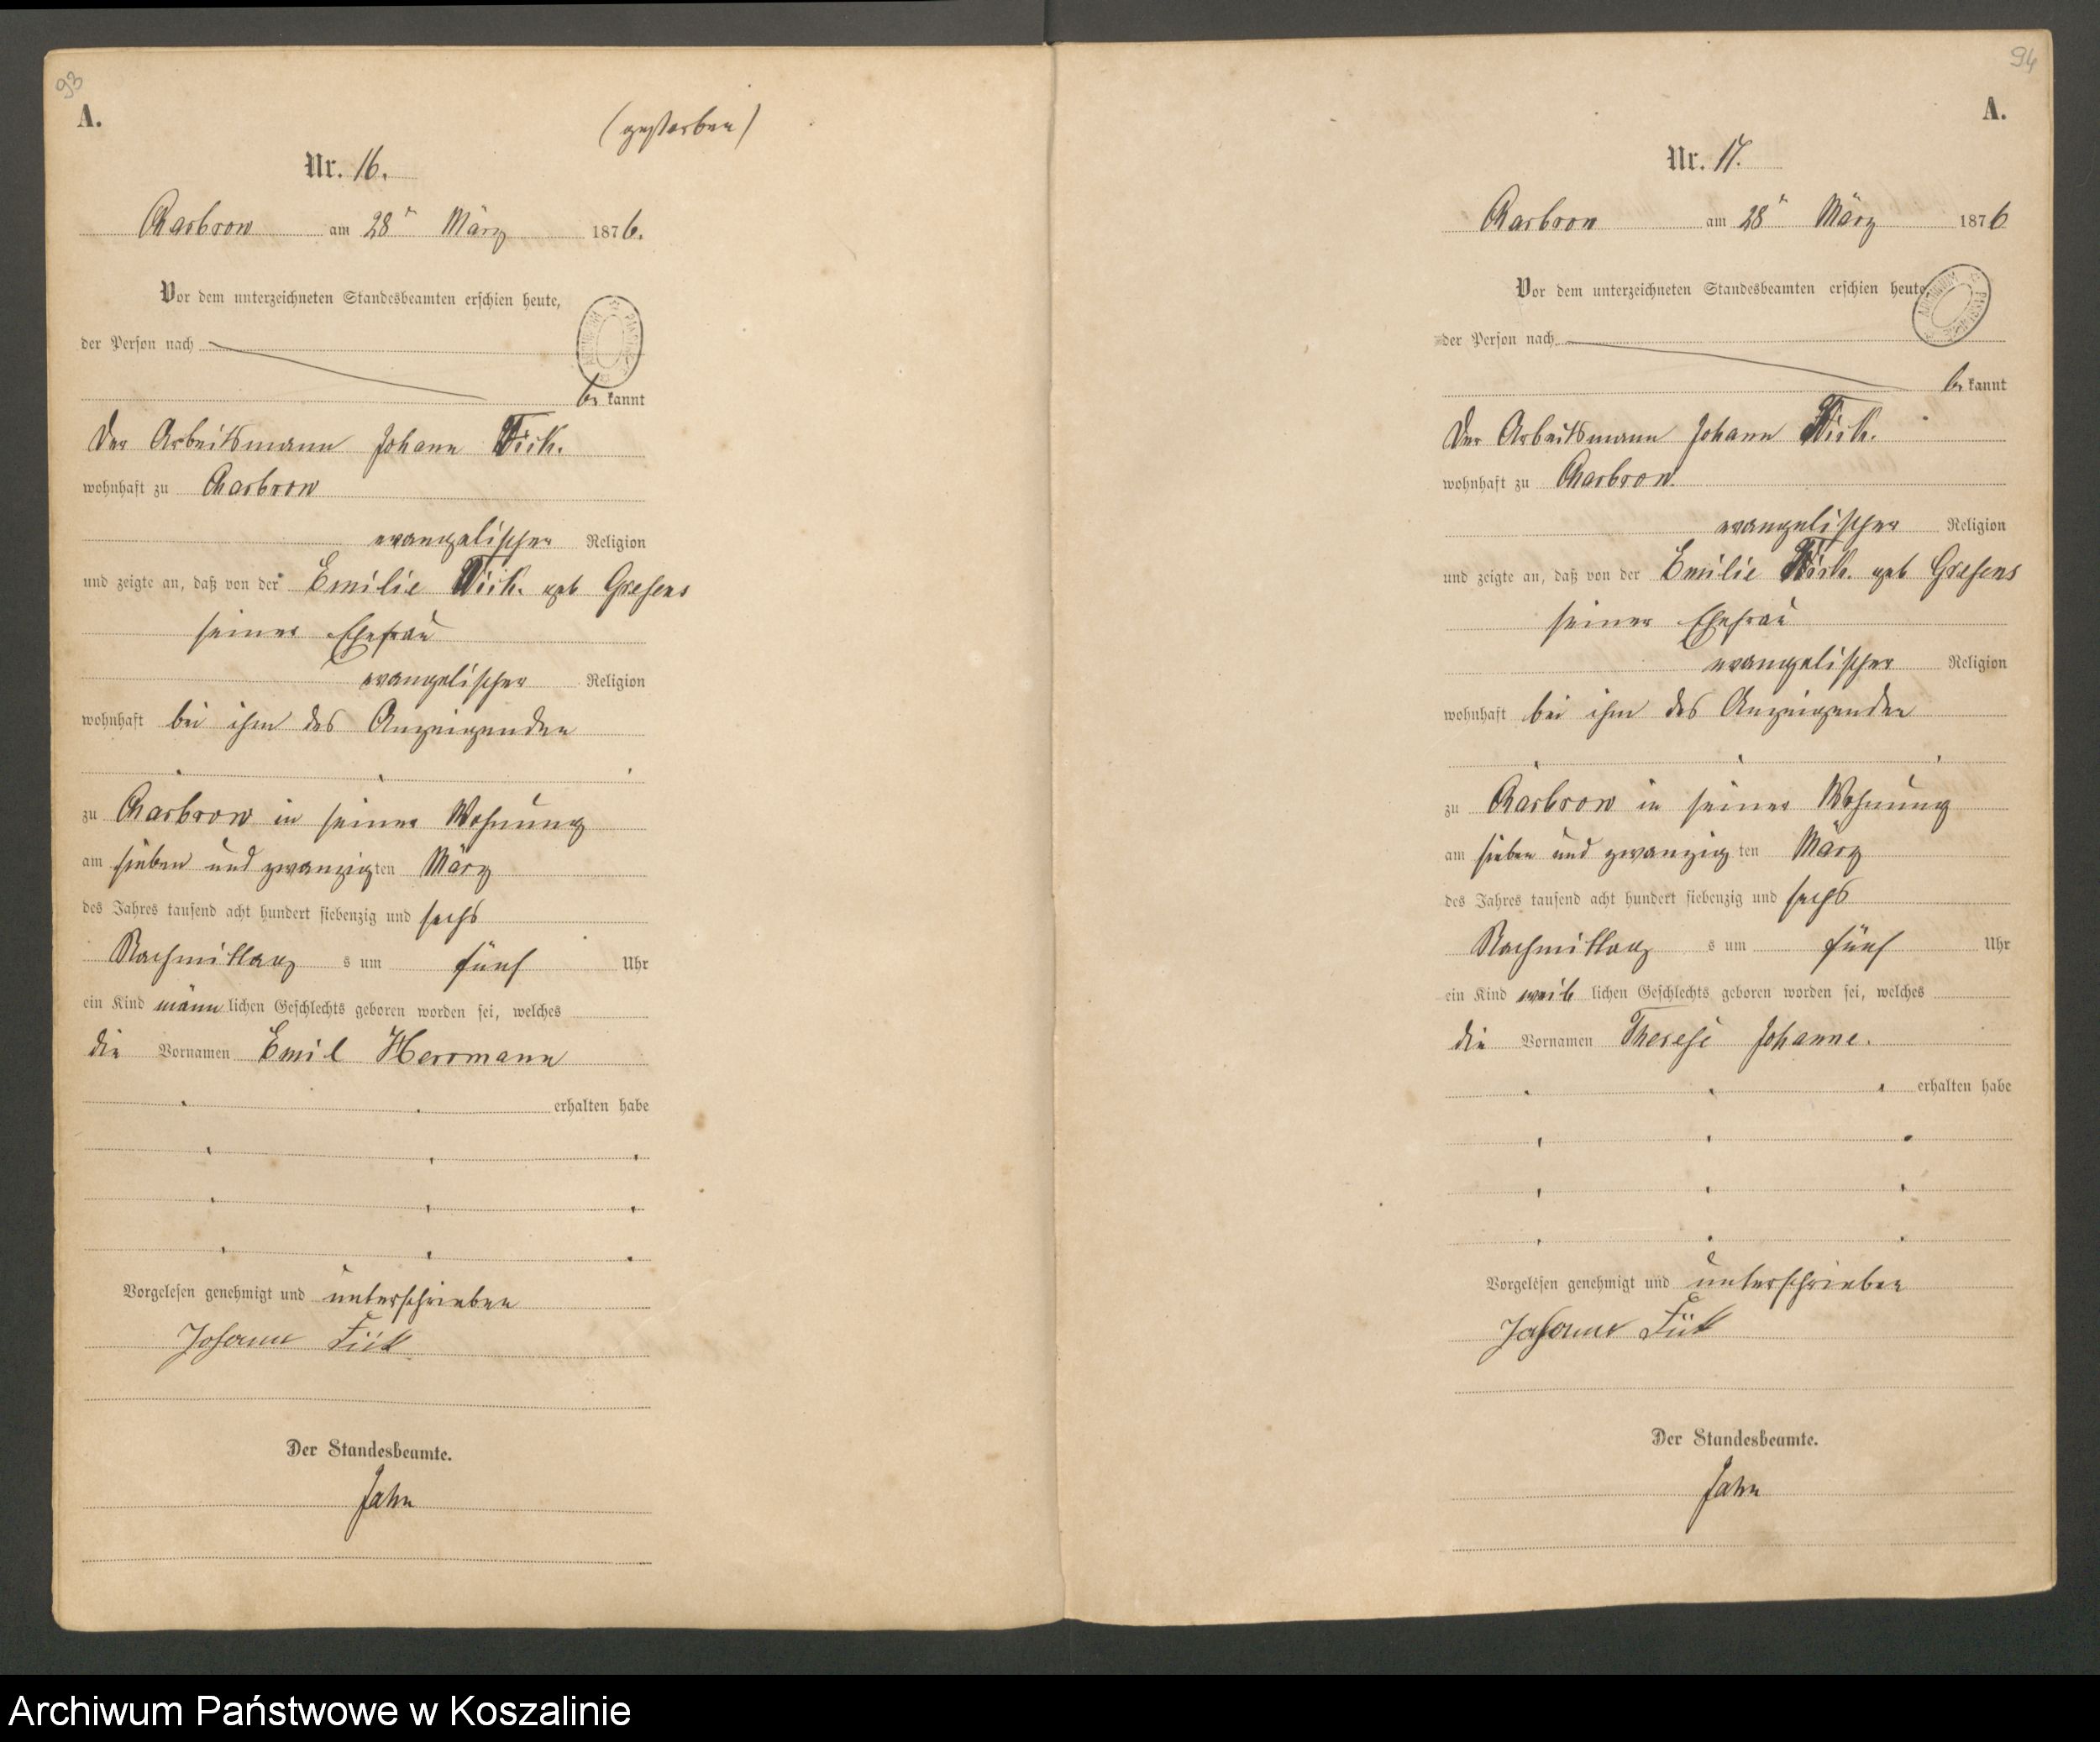 93
A.
(gestorben)
Nr. 16.
Charbrow am 28t März 1876.
Vor dem unterzeichneten Standesbeamten erschien heute,
der Person nach
be kannt
Der Arbeitsmann Johann Fick.
wohnhaft zu Charbrow
evangelischer Religion
und zeigte an, daß von der Emilie Fick. geb Gresens
seiner Ehefrau
evangelischer Religion
wohnhaft bei ihm des Anzeigenden
zu Charbrow in seiner Wohnung
am sieben und zwanzig ten März
des Jahres tausend acht hundert siebenzig und sechs
Nachmittag s um fünf Uhr
ein Kind männ lichen Geschlechts geboren worden sei, welches
die Vornamen Emil Herrmann
erhalten habe
Vorgelesen genehmigt und unterschrieben
Johann Fick
Der Standesbeamte.
Jahn
94
A.
Nr. 17.
Charbrow am 28t März 1876
Vor dem unterzeichneten Standesbeamten erschien heute,
der Person nach
be kannt
Der Arbeitsmann Johann Fick.
wohnhaft zu Charbrow.
evangelischer Religion
und zeigte an, daß von der Emilie Fick. geb Gresens
seiner Ehefrau
evangelischer Religion
wohnhaft bei ihm des Anzeigenden
zu Charbrow in seiner Wohnung
am sieben und zwanzig ten März
des Jahres tausend acht hundert siebenzig und sechs
Nachmittag s um fünf Uhr
ein Kind weib lichen Geschlechts geboren worden sei, welches
die Vornamen Therese Johanne.
erhalten habe
Vorgelesen genehmigt und unterschrieben
Johann Fick
Der Standesbeamte.
Jahn
Archiwum Państwowe w Koszalinie